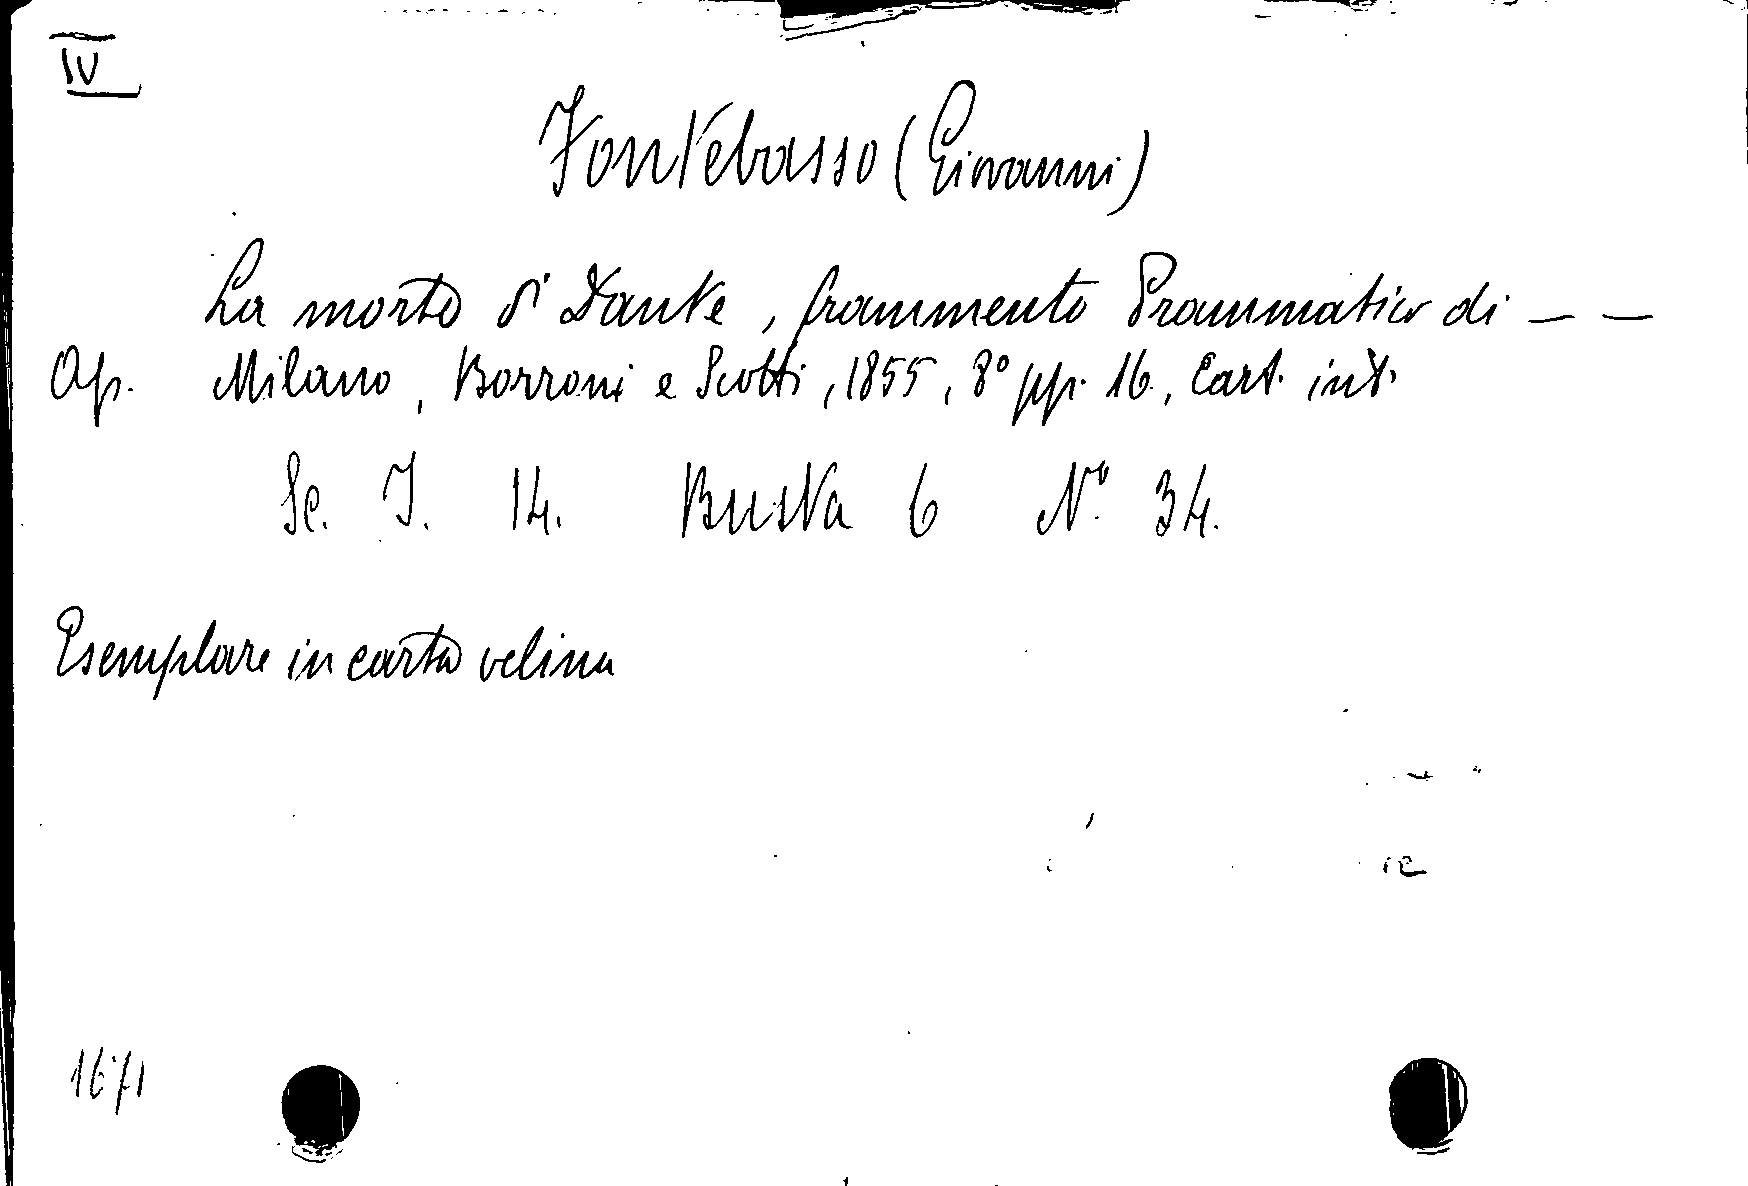 IV
Fontebasso (Giovanni)
La morte di Dante, frammento Drammatico di — —
Op. Milano, Borroni e Scotti, 1855, 8° pp. 16, Cart. int.
Sc. I. 14. Busta 6 N° 34.
Esemplare in carta velina
1671